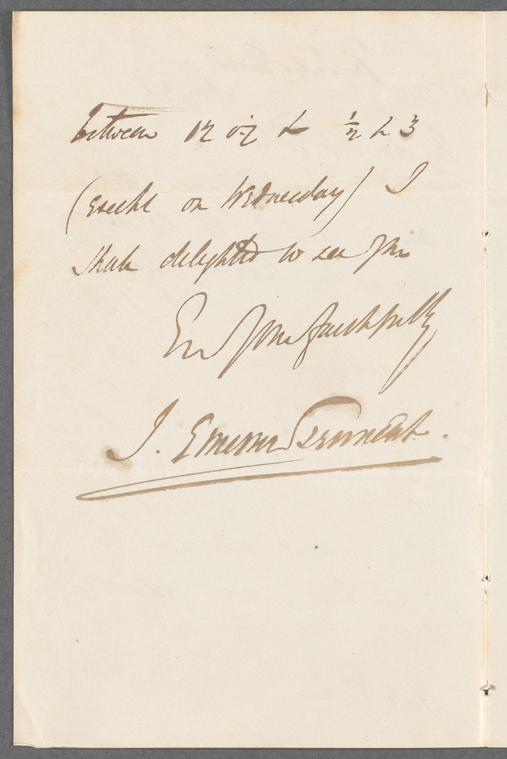 between 12 &
½ 2 & 3
(except on Wednesday) I
shall delighted to see you
Ever yours faithfully
J. Emerson Tennent.